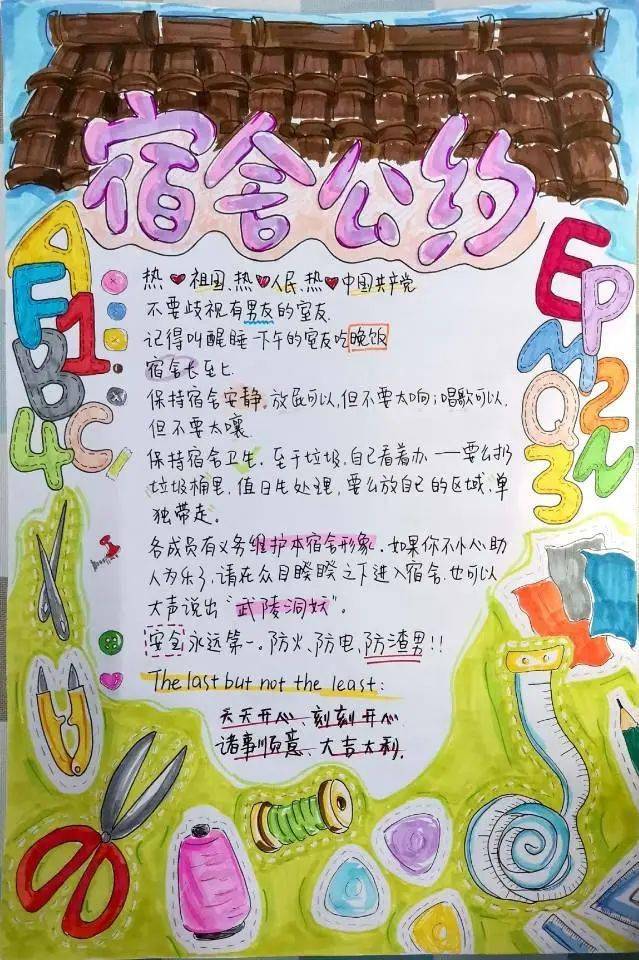 宿舍公约
A
F1
B
4C
E
P
M
Q2
3N
热❤祖国、热❤人民、热❤中国共产党
不要歧视有男友的室友.
记得叫醒睡一下午的室友吃晚饭
宿舍长至上
保持宿舍安静.放屁可以,但不要太响;唱歌可以,
但不要太嚷.
保持宿舍卫生.至于垃圾,自己看着办——要么扔
垃圾桶里,值日生处理,要么放自己的区域,单
独带走。
各成员有义务维护本宿舍形象.如果你不小心助
人为乐了,请在众目睽睽之下进入宿舍.也可以
大声说出"武陵洞妖"。
安全永远第一。防火、防电、防渣男!!
The last but not the least:
天天开心、刻刻开心
诸事顺意、大吉大利.